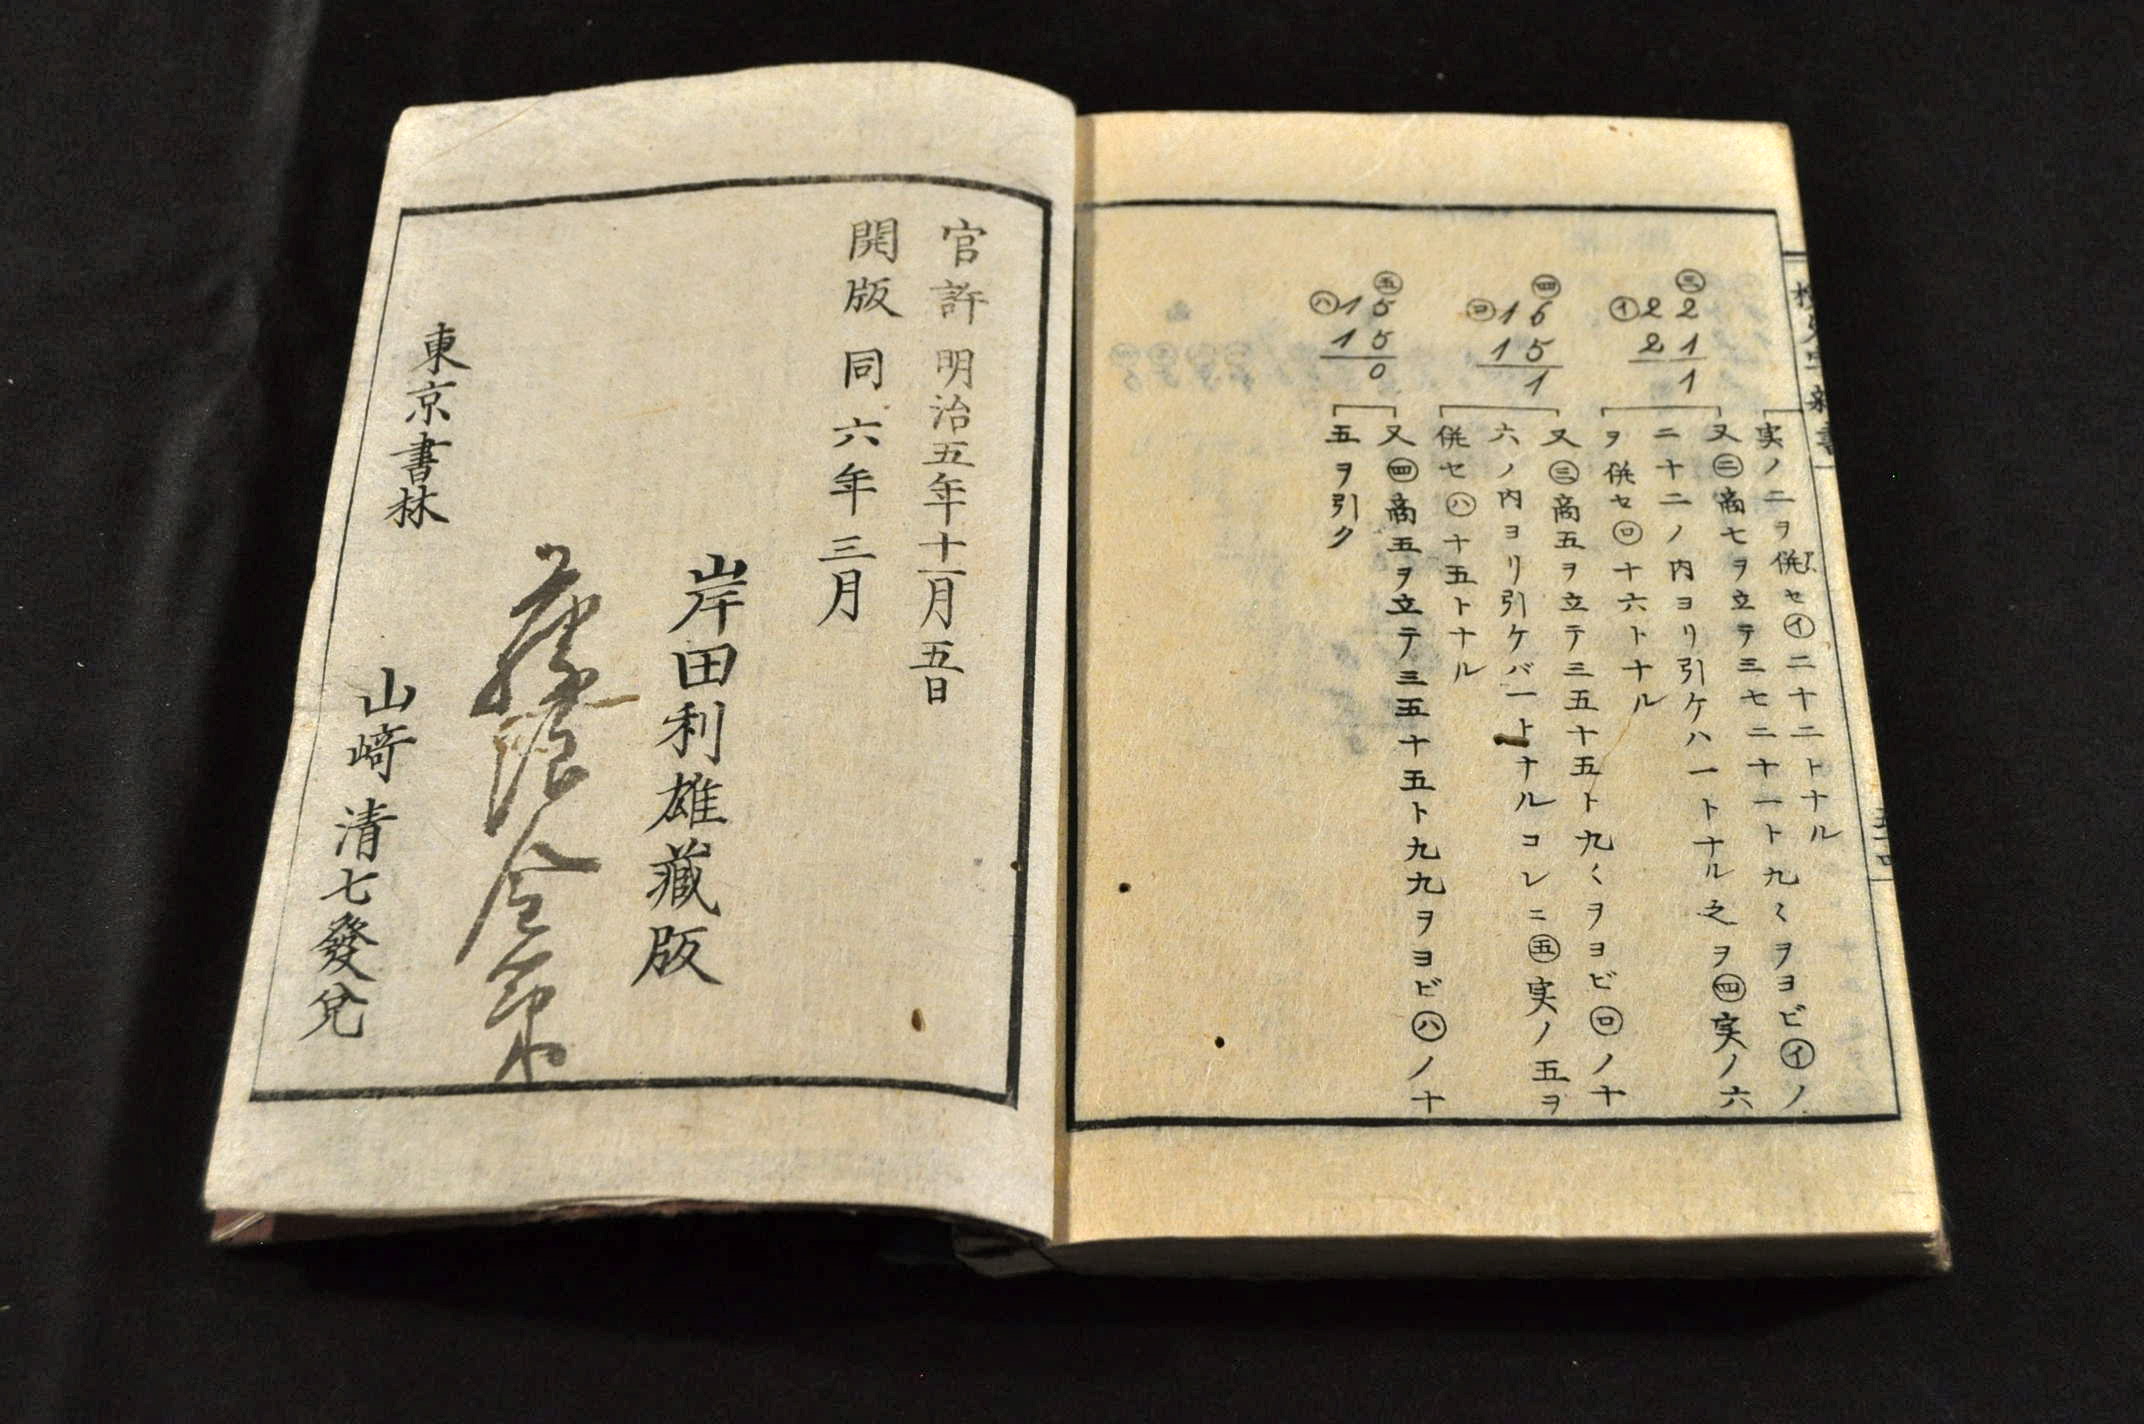 ㊂
㋑22
21
1
㊃
㋺16
15
1
㊄
㋩15
15
0
実ノ二ヲ併セ㋑二十二トナル
又㊂商七ヲ立テ三七二十一ト九〱ヲヨビ㋑ノ
二十二ノ内ヨリ引ケハ一トナル之ヲ㊃実ノ六
ヲ併セ㋺十六トナル
又㊂商五ヲ立テ三五十五ト九〱ヲヨビ㋺ノ十
六ノ内ヨリ引ケバ一トナルコレニ㊄実ノ五ヲ
併セ㋩十五トナル
又㊃商五ヲ立テ三五十五ト九九ヲヨビ㋩ノ十
五ヲ引ク
官許 明治五年十一月五日
開版 同六年三月
岸田利雄藏版
東京書林
山﨑清七發兌